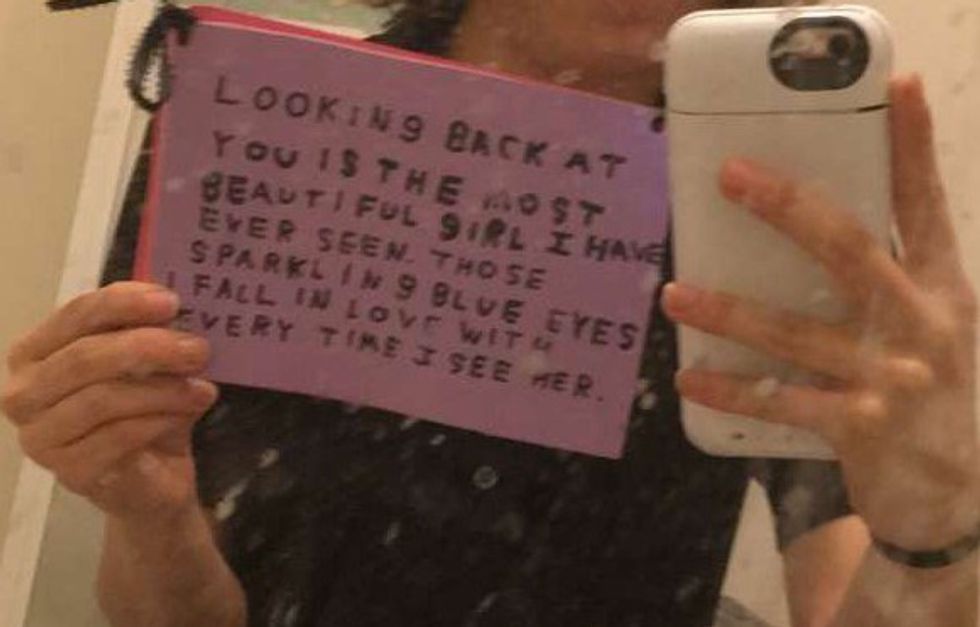 LOOKING BACK AT
YOU IS THE MOST
BEAUTIFUL GIRL I HAVE
EVER SEEN. THOSE
SPARKLING BLUE EYES
I FALL IN LOVE WITH
EVERY TIME I SEE HER.